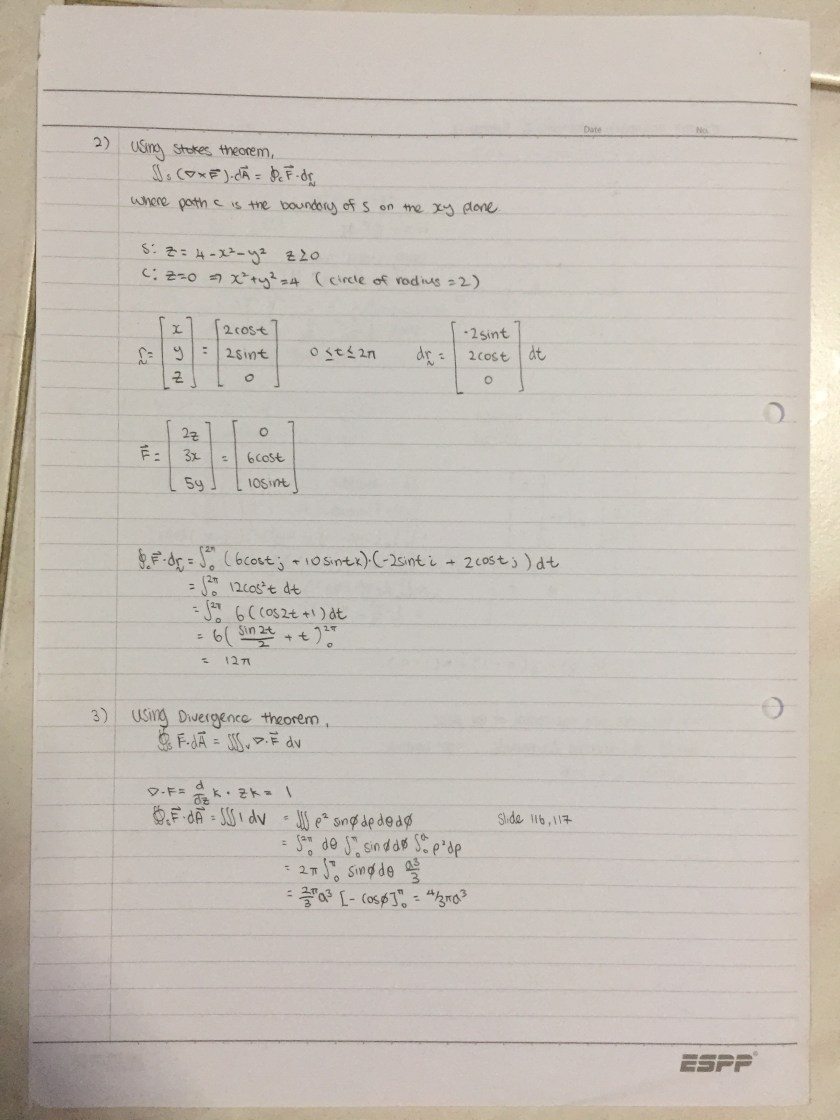 Date No.
2) Using Stokes theorem,
∬s (∇×F⃗)·dA⃗ = ∮c F⃗·dr̰
where path c is the boundary of S on the xy plane
S: z = 4-x²-y² z≥0
C: z=0 ⇒ x²+y²=4 ( circle of radius = 2 )
r̰ = [x y z] = [2cost 2sint 0] 0≤t≤2π dr̰ = [-2sint 2cost 0] dt
F⃗ = [2z 3x 5y] = [0 6cost 10sint]
∮c F⃗·dr̰ = ∫₀^2π (6cost j + 10sint k)·(-2sint i + 2cost j) dt
= ∫₀^2π 12cos²t dt
= ∫₀^2π 6(cos2t+1) dt
= 6( sin2t/2 + t )₀^2π
= 12π
3) Using Divergence theorem,
∯s F⃗·dA⃗ = ∭v ∇·F⃗ dv
∇·F = d/dz k · zk = 1
∯s F⃗·dA⃗ = ∭1 dv = ∭ ρ² sinφ dρ dθ dφ Slide 116, 117
= ∫₀^2π dθ ∫₀^π sinφ dφ ∫₀^a ρ² dρ
= 2π ∫₀^π sinφ dθ a³/3
= 2π/3 a³ [-cosφ]₀^π = 4/3πa³
ESPP